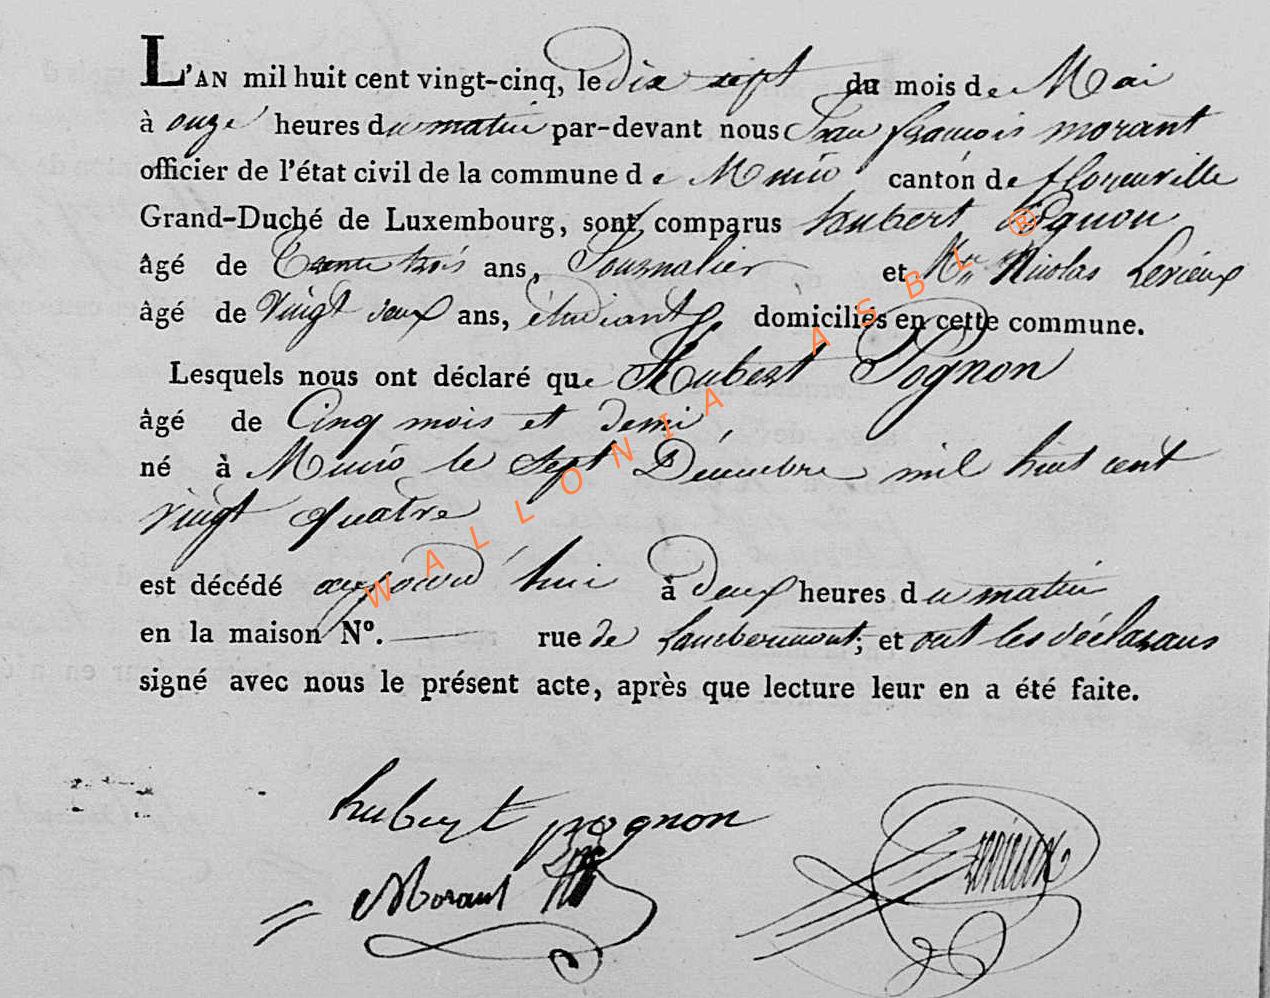 L'AN mil huit cent vingt-cinq, le dix sept du mois de Mai
à onze heures du matin par-devant nous Jean françois morant
officier de l'état civil de la commune de Muno canton de florenville
Grand-Duché de Luxembourg, sont comparus hubert Pognon
âgé de Trente trois ans, Journalier et Mr Nicolas Lerieux
âgé de Vingt deux ans, étudiant domiciliés en cette commune.
Lesquels nous ont déclaré que Hubert Pognon
âgé de Cinq mois et demi,
né à Muno le Sept Décembre mil huit cent
vingt quatre
est décédé aujourd'hui à deux heures du matin
en la maison Nº. rue de Lambermont; et ont les déclarans
signé avec nous le présent acte, après que lecture leur en a été faite.
hubert pognon
Morant
Lerieux
WALLONIA ASBL ®